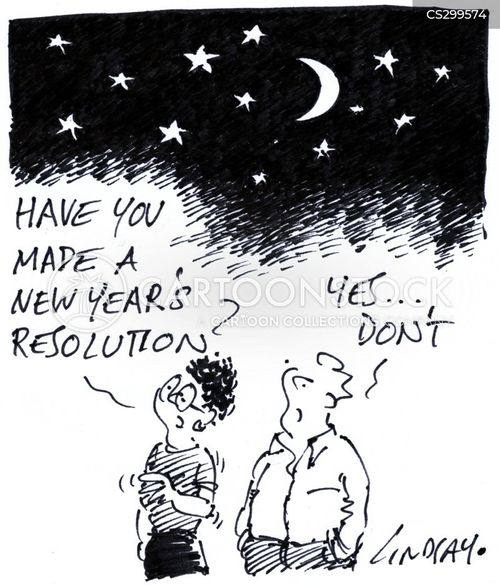 CS299574
HAVE YOU
MADE A
NEW YEAR'S
RESOLUTION?
YES...
DON'T
CARTOONSTOCK
CARTOON COLLECTIONS
LINDSAY.